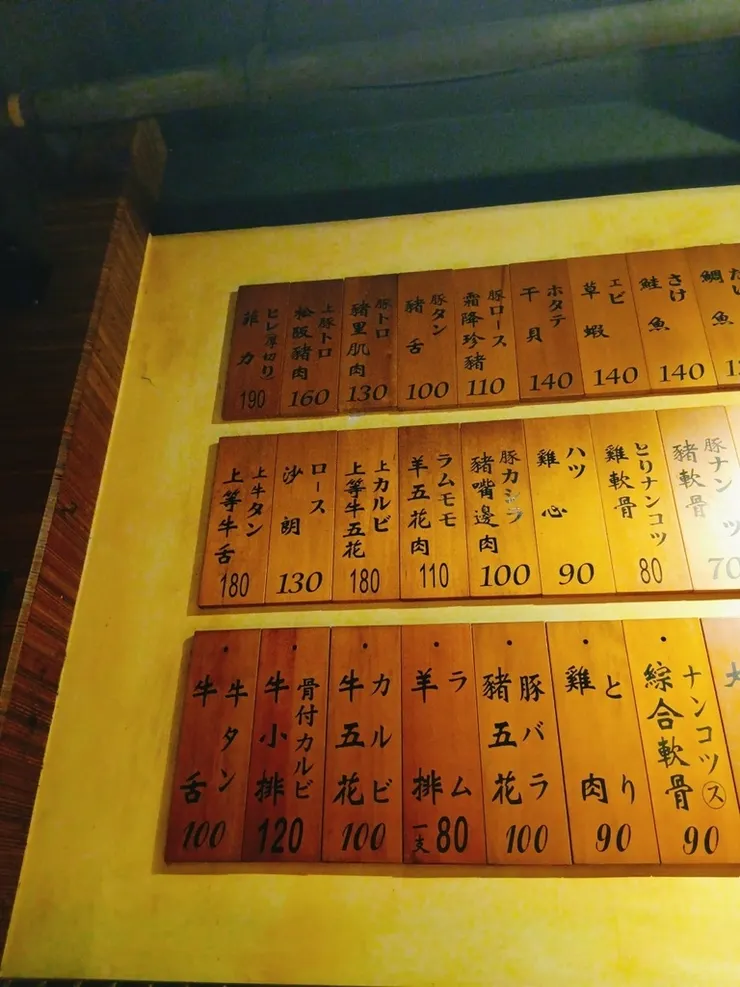 ヒレ(厚切り)
菲力
190
上豚トロ
松阪豬肉
160
豚トロ
豬里肌肉
130
豚タン
豬舌
100
豚ロース
霜降珍豬
110
ホタテ
干貝
140
エビ
草蝦
140
さけ
鮭魚
140
たい
鯛魚
上牛タン
上等牛舌
180
ロース
沙朗
130
上カルビ
上等牛五花
180
ラムモモ
羊五花肉
110
豚カシラ
豬嘴邊肉
100
ハツ
雞心
90
とりナンコツ
雞軟骨
80
豚ナンコツ
豬軟骨
70
牛タン
牛舌
100
骨付カルビ
牛小排
120
カルビ
牛五花
100
ラム
羊排
一支80
豚バラ
豬五花
100
とり
雞肉
90
ナンコツ㋜
綜合軟骨
90